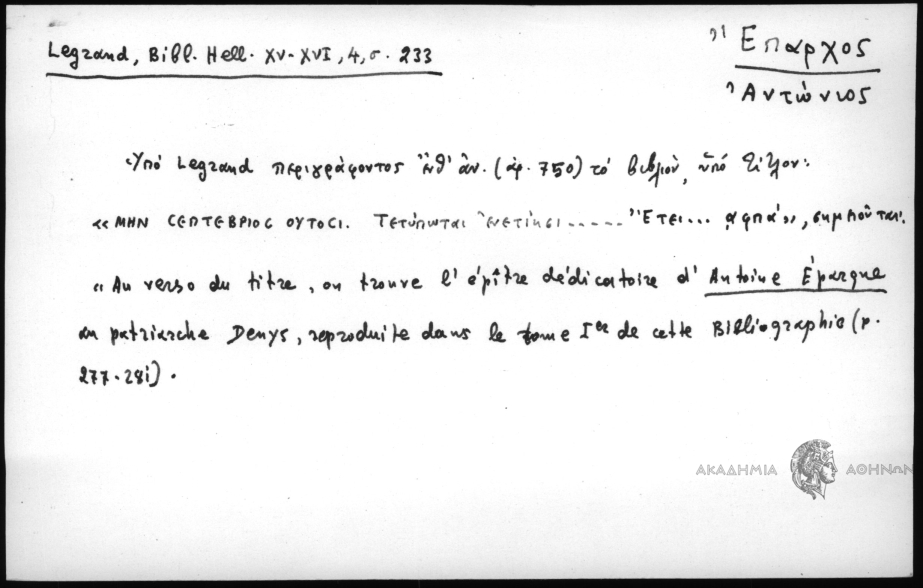 Legrand, Bibl. Hell. XV-XVI, 4, σ. 233
Ἔπαρχος
Ἀντώνιος
Ὑπό Legrand περιγράφοντος ἔνθ' ἀν. (ἀρ. 750) τό βιβλίον, ὑπό τίτλον:
«ΜΗΝ CΕΠΤΕΒΡΙΟC ΟΥΤΟCΙ. Τετύπωται Ἐνετίησι ..... Ἔτει... αφπά», σημειοῦται:
«Au verso du titre, on trouve l'épître dédicatoire d'Antoine Éparque
au patriarche Denys, reproduite dans le tome Ier de cette Bibliographie (p.
277-281).
ΑΚΑΔΗΜΙΑ ΑΘΗΝΩΝ